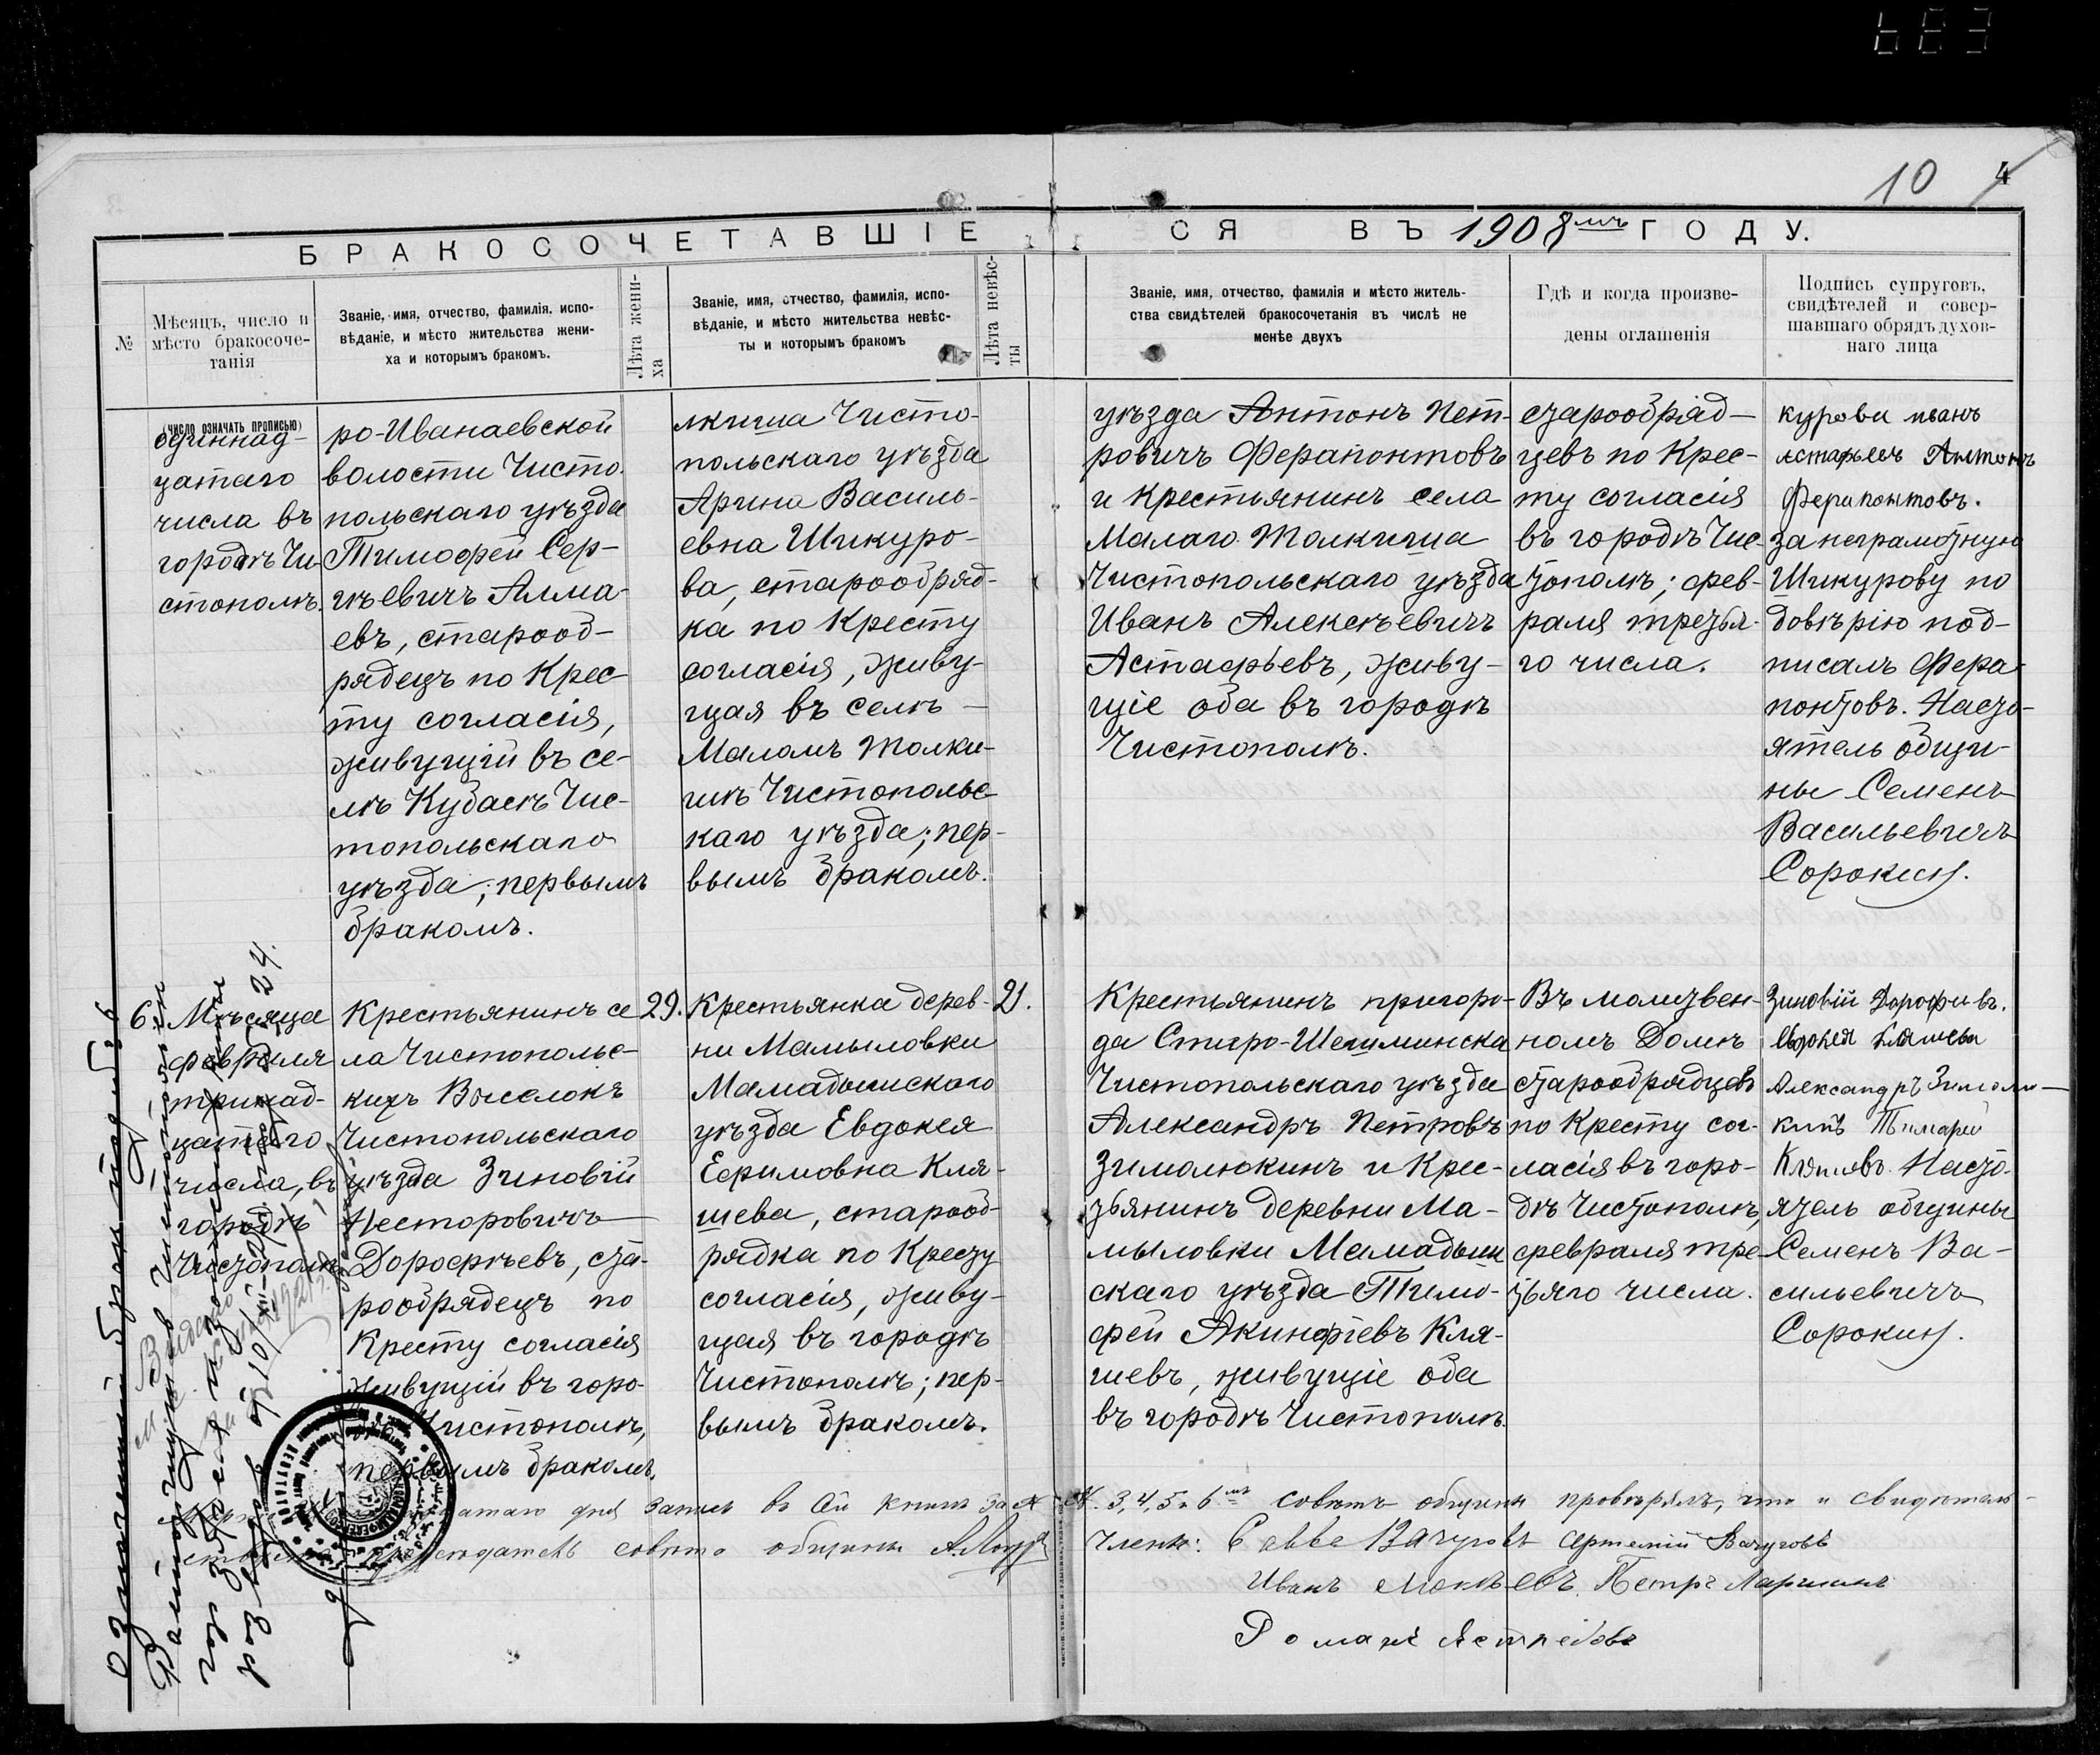 10 4
БРАКОСОЧЕТАВШІЕСЯ ВЪ 1908мъ ГОДУ.
№
Мѣсяцъ, число и
мѣсто бракосоче-
танія
Званіе, имя, отчество, фамилія, испо-
вѣданіе, и мѣсто жительства жени-
ха и которымъ бракомъ.
Лѣта жени-
ха
Званіе, имя, отчество, фамилія, испо-
вѣданіе, и мѣсто жительства невѣс-
ты и которымъ бракомъ
Лѣта невѣс-
ты
Званіе, имя, отчество, фамилія и мѣсто житель-
ства свидѣтелей бракосочетанія въ числѣ не
менѣе двухъ
Гдѣ и когда произве-
дены оглашенія
Подпись супруговъ,
свидѣтелей и совер-
шавшаго обрядъ духов-
наго лица
(ЧИСЛО ОЗНАЧАТЬ ПРОПИСЬЮ)
одиннад-
цатаго
числа въ
городѣ Чи-
стополѣ.
ро-Иванаевской
волости Чисто-
польскаго уѣзда
Тимофей Сер-
гѣевичъ Алма-
евъ, старооб-
рядецъ по Крес-
ту согласія,
живущій въ се-
лѣ Кубасѣ Чис-
топольскаго
уѣзда; первымъ
бракомъ.
лкиша Чисто-
польскаго уѣзда
Арина Василь-
евна Шикуро-
ва, старообряд-
ка по Кресту
согласія, живу-
щая въ селѣ —
Маломъ Толки-
шѣ Чистопольс-
каго уѣзда; пер-
вымъ бракомъ.
уѣзда Антонъ Пет-
ровичъ Ферапонтовъ
и Крестьянинъ села
Малаго Толкиша
Чистопольскаго уѣзда
Иванъ Алексѣевичъ
Астафьевъ, живу-
щіе оба въ городѣ
Чистополѣ.
старообряд-
цевъ по Крес-
ту согласія
въ городѣ Чис-
тополѣ; фев-
раля третья-
го числа.
курови иванъ
Астафьевъ Антонъ
Ферапонтовъ.
За неграмотную
Шикурову по
довѣрію под-
писалъ Фера-
понтовъ. Насто-
ятель общи-
ны Семенъ
Васильевичъ
Сорокин.
6. Мѣсяца
февраля
тринад-
цатаго
числа, въ
городѣ
Чистополѣ
Крестьянинъ се-
ла Чистопольс-
кихъ Выселокъ
Чистопольскаго
уѣзда Зиновій
Несторовичъ
Дорофѣевъ, ста-
рообрядецъ по
Кресту согласія
живущій въ горо-
Чистополѣ,
первымъ бракомъ.
29.
Крестьянка дерев-
ни Мамыловки
Мамадышскаго
уѣзда Евдокея
Ефимовна Кля-
шева, старооб-
рядка по Кресту
согласія, живу-
щая въ городѣ
Чистополѣ; пер-
вымъ бракомъ.
21.
Крестьянинъ пригоро-
да Старо-Шешминска
Чистопольскаго уѣзда
Александръ Петровъ
Зималюкинъ и Крес-
тьянинъ деревни Ма-
мыловки Мамадыш-
скаго уѣзда Тимо-
фей Акинфіевъ Кля-
шевъ, живущіе оба
въ городѣ Чистополѣ.
Въ молитвен-
номъ Домѣ
старообрядцевъ
по Кресту сог-
ласія въ горо-
дѣ Чистополѣ,
февраля тре-
тьяго числа.
Зиновій Дорофѣевъ.
Евдокея Кляшева
Александръ Зималю-
кинъ Тимофей
Кляшевъ. Насто-
ятель общины
Семенъ Ва-
сильевичъ
Сорокин.
дня запись въ сей книгѣ за № №. 3, 4, 5 и 6мъ совѣтъ общины провѣрялъ, что и свидѣтель-
Предсѣдатель совѣта общины
Члены: Савва Вачуговъ Артемій Вачуговъ
Иванъ Мокѣевъ. Петръ Ларшинъ
Романъ Ястребовъ
Означенный брак под № 6